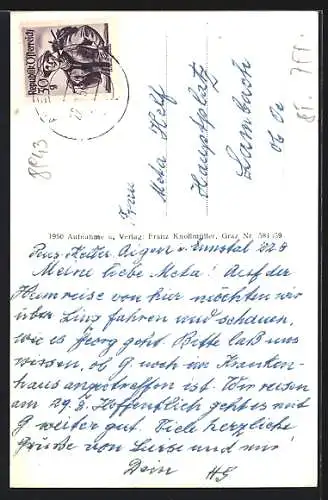 Republik Österreich
50 g
Frau
Meta Helf
Hauptplatz
Lambach
Ob Ö
1950 Aufnahme u. Verlag: Franz Knollmüller, Graz Nr. 584/59
Aigen Ennstal
Meine liebe Meta! Auf der
Heimreise von hier möchten wir
über Linz fahren und schauen,
wie es Georg geht. Bitte laß uns
wissen, ob G noch im Kranken-
haus anzutreffen ist. Wir reisen
am 29. Hoffentlich geht es mit
G weiter gut. Viele herzliche
Grüße von Luise und mir
Dein HG
8943